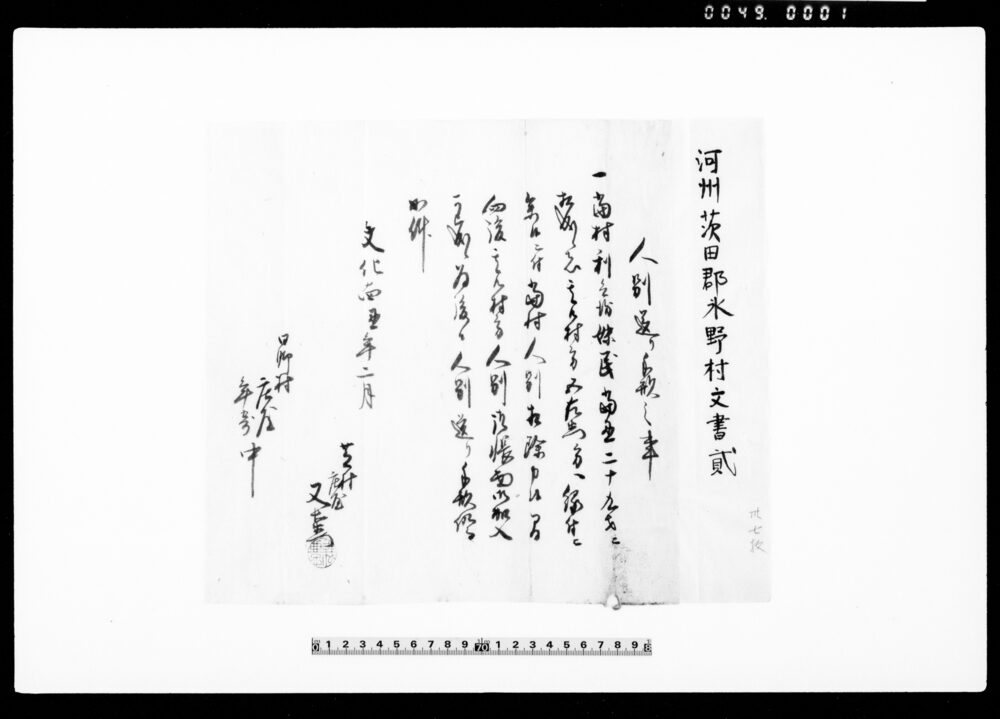 0049. 0001
河州茨田郡氷野村文書貳
廿七枚
人別送り手形之事
一当村利兵衛妹民当丑二十九才ニ
相成候者其御村方 方へ縁付ニ
参候ニ付当村人別相除申候間
向後其御村方人別御帳面御加入
可被成候為後日人別送り手形仍而
如件
文化二丑年二月
村
庄屋
又
村
庄屋
年寄中
0 1 2 3 4 5 6 7 8 9 10 1 2 3 4 5 6 7 8 9